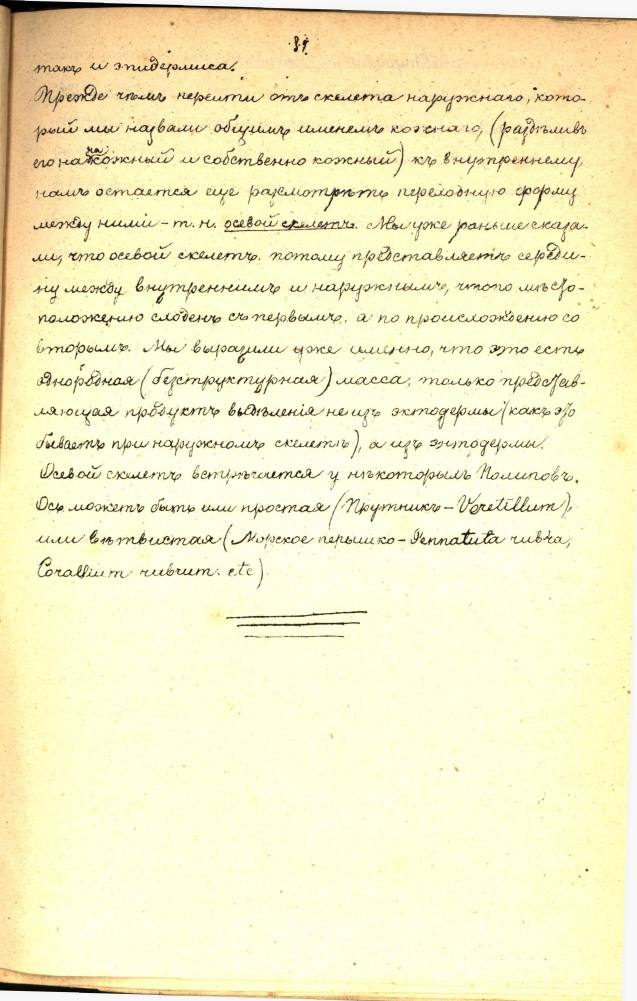 такъ и эпидермиса.
Прежде чѣмъ перейти отъ скелета наружнаго, кото-
рый мы назвали общимъ именемъ кожнаго, (раздѣливъ
его на накожный и собственно кожный) къ внутреннему,
намъ остается еще разсмотрѣть переходную форму
между ними – т. н. осевой скелетъ. Мы уже раньше сказа-
ли, что осевой скелетъ потому представляетъ середи-
ну между внутреннимъ и наружнымъ, что по мѣсто-
положенію сходенъ съ первымъ, а по происхожденію со
вторымъ. Мы выразили уже именно, что это есть
однородная (безструктурная) масса, только представ-
ляющая продуктъ выдѣленія не изъ эктодермы (какъ это
бываетъ при наружномъ скелетѣ), а изъ энтодермы.
Осевой скелетъ встрѣчается у нѣкоторыхъ Полиповъ.
Ось можетъ быть или простая (Прутникъ – Veretillum),
или вѣтвистая (Морское перышко – Pennatula rubra,
Corallium rubrum. etc)